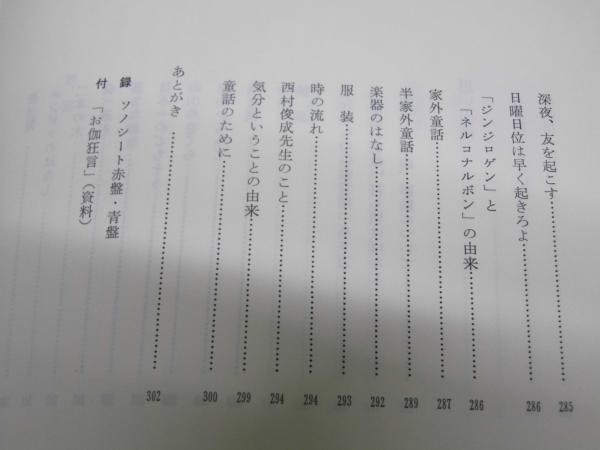 深夜、友を起こす……………………285
日曜日位は早く起きろよ……………………286
「ジンジロゲン」と
「ネルコナルボン」の由来……………………286
家外童話……………………287
半家外童話……………………289
楽器のはなし……………………292
服　装……………………293
時の流れ……………………294
西村俊成先生のこと……………………294
気分ということの由来……………………299
童話のために……………………300
あとがき……………………302
録　ソノシート赤盤・青盤
付　「お伽狂言」（資料）